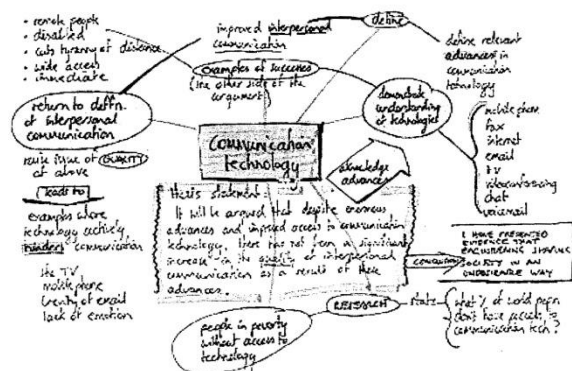 • remote people
• disabled
• cuts tyranny of distance
• wide access
• immediate
improved interpersonal
communication
define
define relevant
advances in
communication
technology
examples of success
(the other side of the
argument)
return to deftn.
of interpersonal
communication
demonstrate
understanding
of technologies
mobile phone
fax
internet
email
TV
videoconferencing
chat
voicemail
communication
technology
raise issue of QUALITY
of above
leads to
examples where
technology actively
hinders communication
the TV
mobile phone
brevity of email
lack of emotion
acknowledge
advances
thesis statement:
It will be argued that despite enormous
advances and improved access to communication
technology, there has not been a significant
increase in the quality of interpersonal
communication as a result of these
advances.
I HAVE PRESENTED
EVIDENCE THAT
ENGINEERING SHAPING
SOCIETY IN AN
WAY
people in poverty
without access to
technology
RESEARCH
stats
what % of world popn
don't have access to
communication tech?